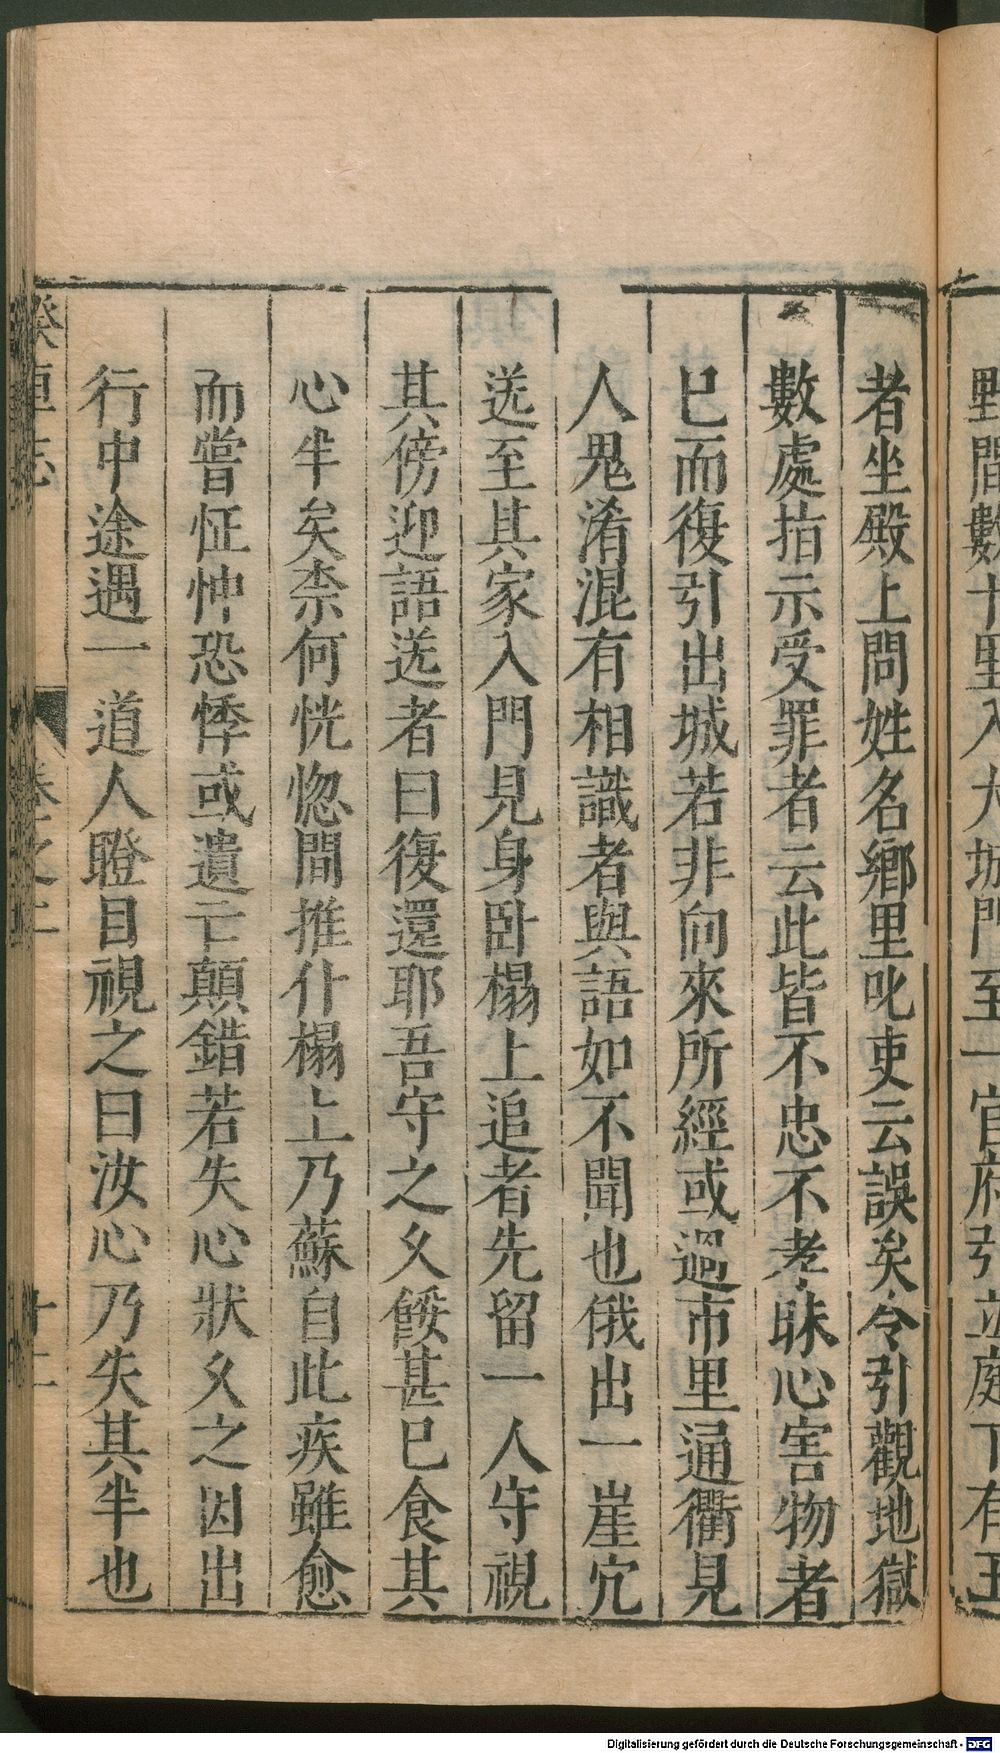 野間數十里入大城門至一官府引立庭下有王
者坐殿上問姓名鄉里叱吏云誤矣令引觀地獄
數處指示受罪者云此皆不忠不孝昧心害物者
巳而復引出城若非向來所經或過市里通衢見
人鬼淆混有相識者與語如不聞也俄出一崖穴
送至其家入門見身卧榻上追者先留一人守視
其傍迎語送者曰復還耶吾守之久餒甚巳食其
心半矣柰何恍惚間推仆榻上乃蘇自此疾雖愈
而嘗怔忡恐悸或遺亡顛錯若失心狀久之因出
行中途遇一道人瞪目視之曰汝心乃失其半也
睽車志 卷之二 十二
Digitalisierung gefördert durch die Deutsche Forschungsgemeinschaft - DFG